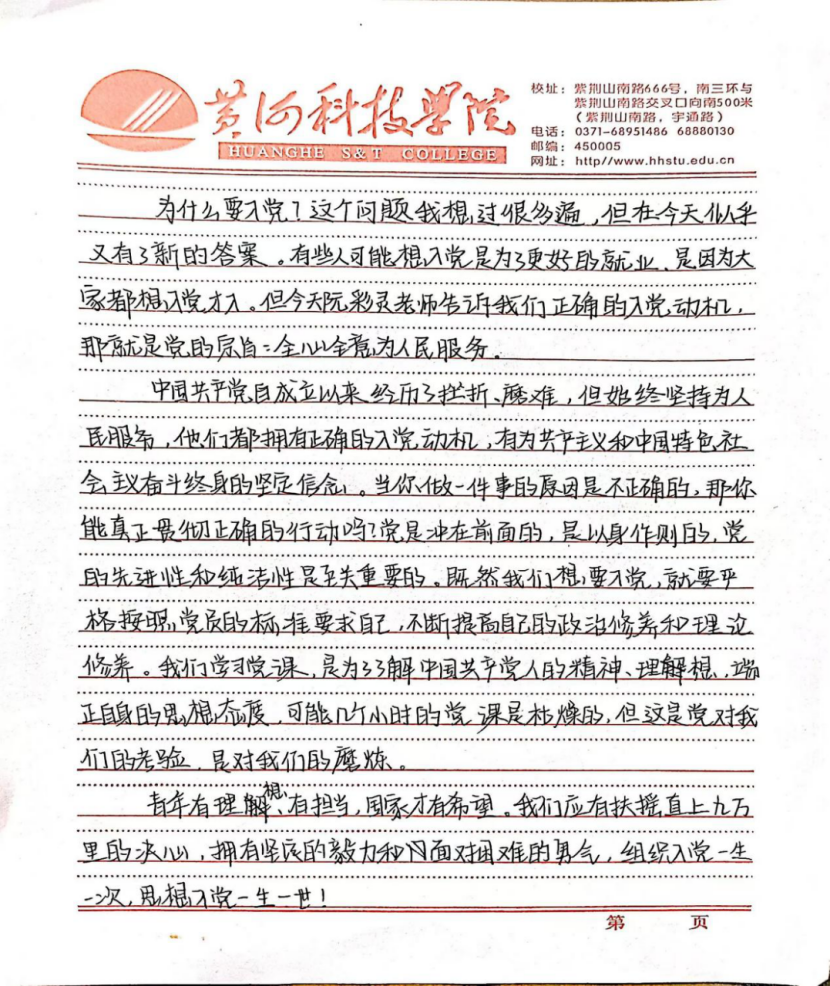 黄河科技学院
HUANGHE S&T COLLEGE
校址：紫荆山南路666号，南三环与
紫荆山南路交叉口向南500米
（紫荆山南路，宇通路）
电话：0371-68951486 68880130
邮编：450005
网址：http//www.hhstu.edu.cn
为什么要入党？这个问题我想过很多遍，但在今天似乎
又有了新的答案。有些人可能想入党是为了更好的就业，是因为大
家都想入党才入。但今天阮彩灵老师告诉我们正确的入党动机，
那就是党的宗旨：全心全意为人民服务。
中国共产党自成立以来经历了挫折、磨难，但始终坚持为人
民服务，他们都拥有正确的入党动机，有为共产主义和中国特色社
会主义奋斗终身的坚定信念。当你做一件事的原因是不正确的，那你
能真正贯彻正确的行动吗？党是冲在前面的，是以身作则的，党
的先进性和纯洁性是至关重要的。既然我们想要入党，就要严
格按照党员的标准要求自己，不断提高自己的政治修养和理论
修养。我们学习党课，是为了了解中国共产党人的精神、理解想、端
正自身的思想态度，可能几个小时的党课是枯燥的，但这是党对我
们的考验，是对我们的磨炼。
青年有理想、有担当，国家才有希望。我们应有扶摇直上九万
里的决心，拥有坚定的毅力和面对困难的勇气，组织入党一生
一次，思想入党一生一世！
第 页